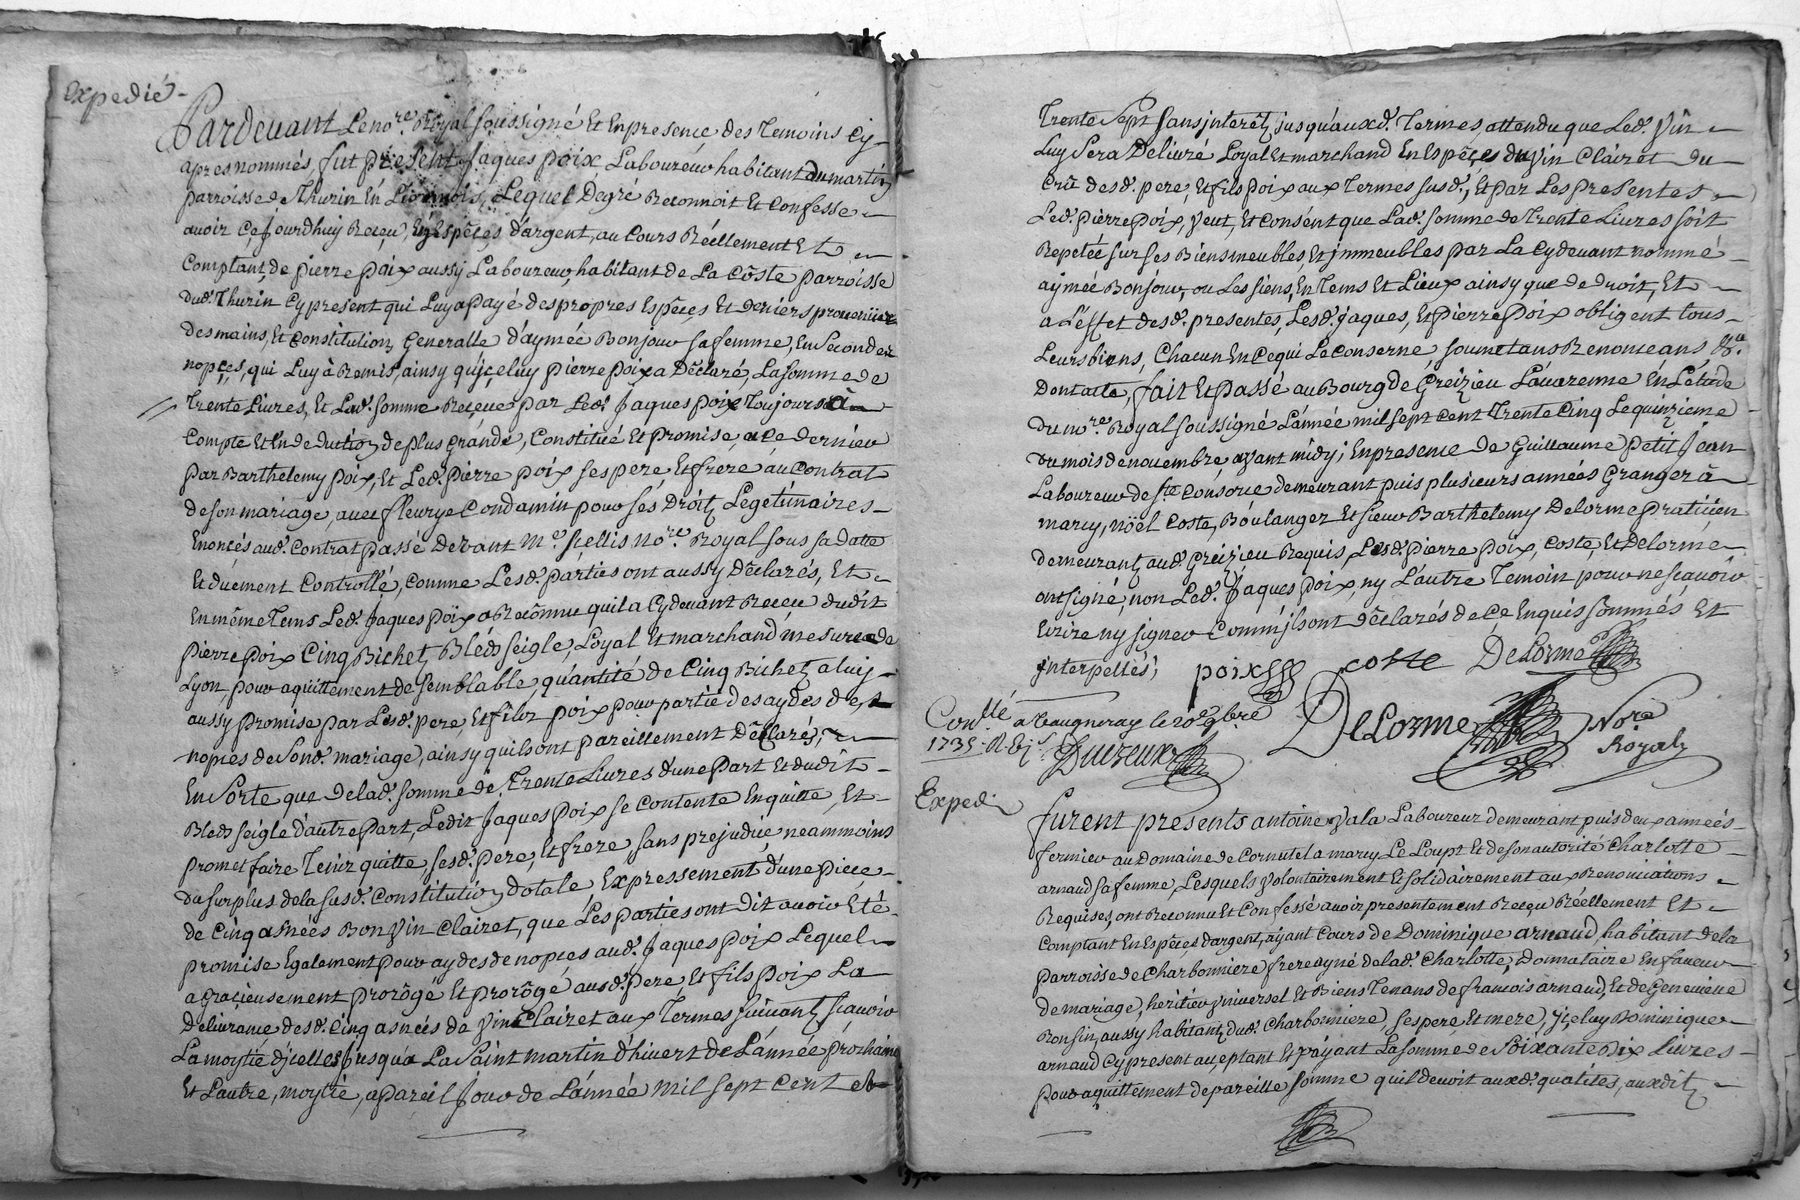 Expedié -
Pardevant Le no.re Royal soussigné Et En presence des Temoins Cy
apres nommés, fut present Jaques poix, Laboureur habitant du martin
parroisse de Thurin En Lionnois, Lequel De gré Reconnoit Et Confesse
avoir Cejourdhuy Receu En Espéces d'argent, au Cours Réellement Et
Comptant, de pierre poix aussy Laboureur, habitant de La Côste parroisse
dud. Thurin Cy present qui Luy a payé des propres Espéces Et deniers provenus
des mains, Et Constitution Generalle d'aymée Bonjour sa femme, En Secondes
nopces, qui Luy à Remis, ainsy qu'iceluy pierre poix a Déclaré, La somme de
Trente Livres, Et Lad. somme Receue par Led. Jaques poix Toujours à
Compte Et En deduction de plus grande, Constitué Et promise, a ce dernier
par Barthelemy poix, Et Led. pierre poix ses pere, Et frere au Contrat
de son mariage, avec fleurye Condamin pour ses Droits Legetimaires
Enoncés aud. Contrat passé Devant M.e no.re Royal sous sa datte
Et duement Controllé, Comme Lesd. parties ont aussy Déclarés, Et
En même Tems Led. Jaques poix a Reconnu quil a Cydevant Receu dudit
pierre poix Cinq Bichets Bleds seigle, Loyal Et marchand mesure de
Lyon, pour aquittement de semblable, quantité de Cinq Bichets a luy
aussy promise par Lesd. pere, Et fils poix pour partie des aydes de
nopces de Sond. mariage, ainsy quils ont pareillement Déclarés,
En Sorte que de lad. somme de Trente Livres d'une part Et dudit
Bleds seigle d'autre part, Ledit Jaques poix se Contente En quitte, Et
promet faire Tenir quitte, sesd. pere, Et frere sans prejudice neammoins
du surplus de la susd. Constitution dotale Expressement d'une piece
de Cinq asnées Bon vin Clairet, que Les parties ont Dit avoir Eté
promise Egalement pour aydes de nopces aud. Jaques poix Lequel
a Gracieusement prorôgé Et prorôgé ausd. pere Et fils poix La
Delivrance desd. Cinq asnées de vin Clairet aux Termes suivants, sçavoir
La moytié d'icelles jusqu'a La Saint martin d'hivert de L'année prochaine
Et L'autre, moytié, a pareil Jour de L'année mil sept Cent
Trente Sept sans jnterets jusqu'auxd. Termes, attendu que Led. vin
Luy Sera Delivré Loyal Et marchand En Espéces du vin Clairet du
Crû desd. pere, Et fils poix aux Termes susd., Et par Les presentes
Led. pierre poix, veut, Et Consent que Lad. somme de Trente Livres soit
Repetée sur ses Biens meubles, Et jmmeubles par La Cydevant nommé
aymée Bonjour, ou Les siens, En Tems Et Lieux ainsy que de droit, Et
a L'effet desd. presentes, Lesd. jaques, Et pierre poix obligent tous
Leurs biens, Chacun En Ce qui Le Conserne, soumetans Renonceans &.a
Dont acte, fait Et passé au Bourg de Greizieu L'avarenne En L'etude
du no.re Royal soussigné L'année mil sept cent Trente Cinq Le quinzieme
du mois de novembre, avant midy; En presence de Guillaume petit Jean
Laboureur de ste Consorce demeurant puis plusieurs années Granger à
marcy, noël Coste, Boulanger Et sieur Barthelemy Delorme praticien
demeurants aud. Greizieu Requis, Lesd. pierre poix, Coste, Et Delorme
ont signé, non Led. Jaques poix, ny L'autre Temoin pour ne sçavoir
Ecrire ny signer Comm'jls ont déclarés de Ce Enquis sommés Et
jnterpellés;
poix Coste Delorme
Con.llé a Vaugneray le 20.e 9bre
1735. R. 6 s. Delorme No.re
Royal
Expedi
furent presents antoine vala Laboureur demeurant puis deux années
fermier au Domaine de Cornutel a marcy Le Loupt Et de son autorité Charlotte
arnaud sa femme, Lesquels volontairement Et solidairement aux Renonciations
Requises, ont Reconnu Et Confessé avoir presentement Receu Réellement Et
Comptant En Espéces d'argent, ayant Cours de Dominique arnaud, habitant de la
parroisse de Charbonniere, frere ayné de lad. Charlotte, Donnataire En faveur
de mariage, heritier vniversel Et Biens Tenans de francois arnaud, Et de Genevieve
Ronsin, aussy habitants dud. Charbonniere, ses pere Et mere, jceluy Dominique
arnaud Cy present aceptant Et payant La somme de Soixante Dix Livres
pour aquittement de pareille somme qu'il devoit auxd. qualités, auxdits